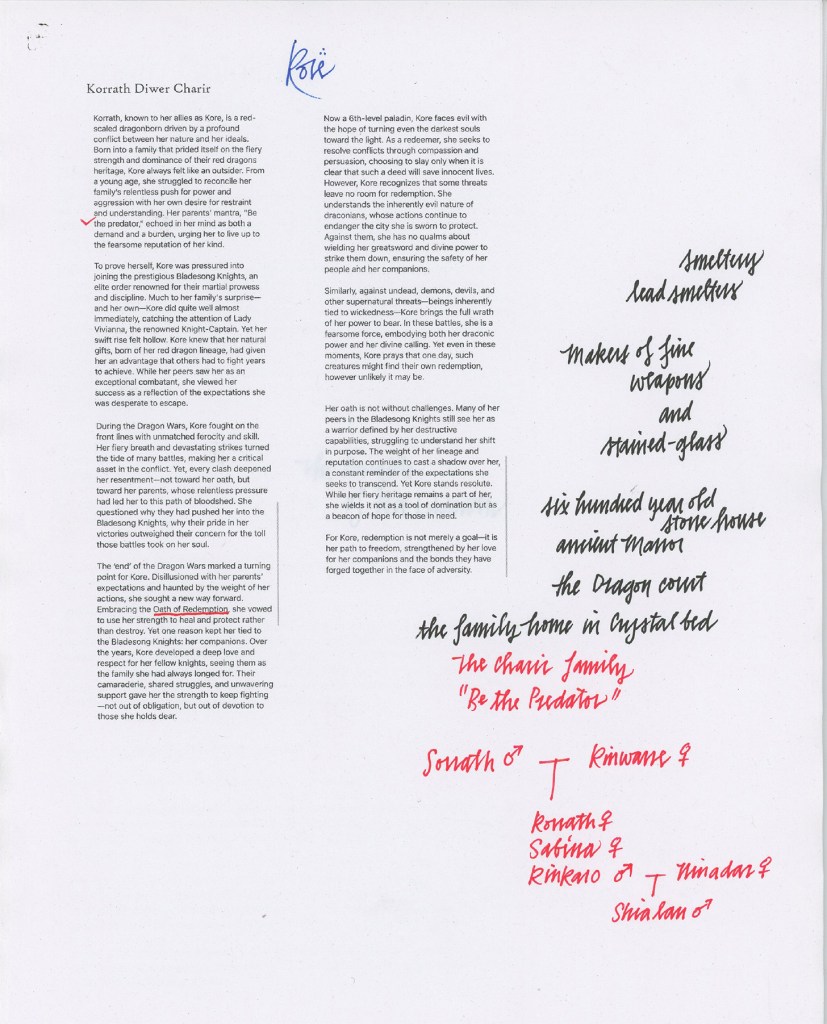 Korë
Korrath Diwer Charir
Korrath, known to her allies as Kore, is a red-
scaled dragonborn driven by a profound
conflict between her nature and her ideals.
Born into a family that prided itself on the fiery
strength and dominance of their red dragons
heritage, Kore always felt like an outsider. From
a young age, she struggled to reconcile her
family's relentless push for power and
aggression with her own desire for restraint
and understanding. Her parents' mantra, "Be
the predator," echoed in her mind as both a
demand and a burden, urging her to live up to
the fearsome reputation of her kind.
To prove herself, Kore was pressured into
joining the prestigious Bladesong Knights, an
elite order renowned for their martial prowess
and discipline. Much to her family's surprise—
and her own—Kore did quite well almost
immediately, catching the attention of Lady
Vivianna, the renowned Knight-Captain. Yet her
swift rise felt hollow. Kore knew that her natural
gifts, born of her red dragon lineage, had given
her an advantage that others had to fight years
to achieve. While her peers saw her as an
exceptional combatant, she viewed her
success as a reflection of the expectations she
was desperate to escape.
During the Dragon Wars, Kore fought on the
front lines with unmatched ferocity and skill.
Her fiery breath and devastating strikes turned
the tide of many battles, making her a critical
asset in the conflict. Yet, every clash deepened
her resentment—not toward her oath, but
toward her parents, whose relentless pressure
had led her to this path of bloodshed. She
questioned why they had pushed her into the
Bladesong Knights, why their pride in her
victories outweighed their concern for the toll
those battles took on her soul.
The 'end' of the Dragon Wars marked a turning
point for Kore. Disillusioned with her parents'
expectations and haunted by the weight of her
actions, she sought a new way forward.
Embracing the Oath of Redemption, she vowed
to use her strength to heal and protect rather
than destroy. Yet one reason kept her tied to
the Bladesong Knights: her companions. Over
the years, Kore developed a deep love and
respect for her fellow knights, seeing them as
the family she had always longed for. Their
camaraderie, shared struggles, and unwavering
support gave her the strength to keep fighting
—not out of obligation, but out of devotion to
those she holds dear.
Now a 6th-level paladin, Kore faces evil with
the hope of turning even the darkest souls
toward the light. As a redeemer, she seeks to
resolve conflicts through compassion and
persuasion, choosing to slay only when it is
clear that such a deed will save innocent lives.
However, Kore recognizes that some threats
leave no room for redemption. She
understands the inherently evil nature of
draconians, whose actions continue to
endanger the city she is sworn to protect.
Against them, she has no qualms about
wielding her greatsword and divine power to
strike them down, ensuring the safety of her
people and her companions.
Similarly, against undead, demons, devils, and
other supernatural threats—beings inherently
tied to wickedness—Kore brings the full wrath
of her power to bear. In these battles, she is a
fearsome force, embodying both her draconic
power and her divine calling. Yet even in these
moments, Kore prays that one day, such
creatures might find their own redemption,
however unlikely it may be.
Her oath is not without challenges. Many of her
peers in the Bladesong Knights still see her as
a warrior defined by her destructive
capabilities, struggling to understand her shift
in purpose. The weight of her lineage and
reputation continues to cast a shadow over her,
a constant reminder of the expectations she
seeks to transcend. Yet Kore stands resolute.
While her fiery heritage remains a part of her,
she wields it not as a tool of domination but as
a beacon of hope for those in need.
For Kore, redemption is not merely a goal—it is
her path to freedom, strengthened by her love
for her companions and the bonds they have
forged together in the face of adversity.
smeltery
lead smelters
Makers of fine
weapons
and
stained-glass
six hundred year old
stone house
ancient Manor
the Dragon court
the family home in Crystal bed
The Charir family
"Be the Predator"
Sorrath ♂ Rinwarre ♀
Korrath ♀
Sabina ♀
Rinkaro ♂ Ninadar ♀
Shialan ♂